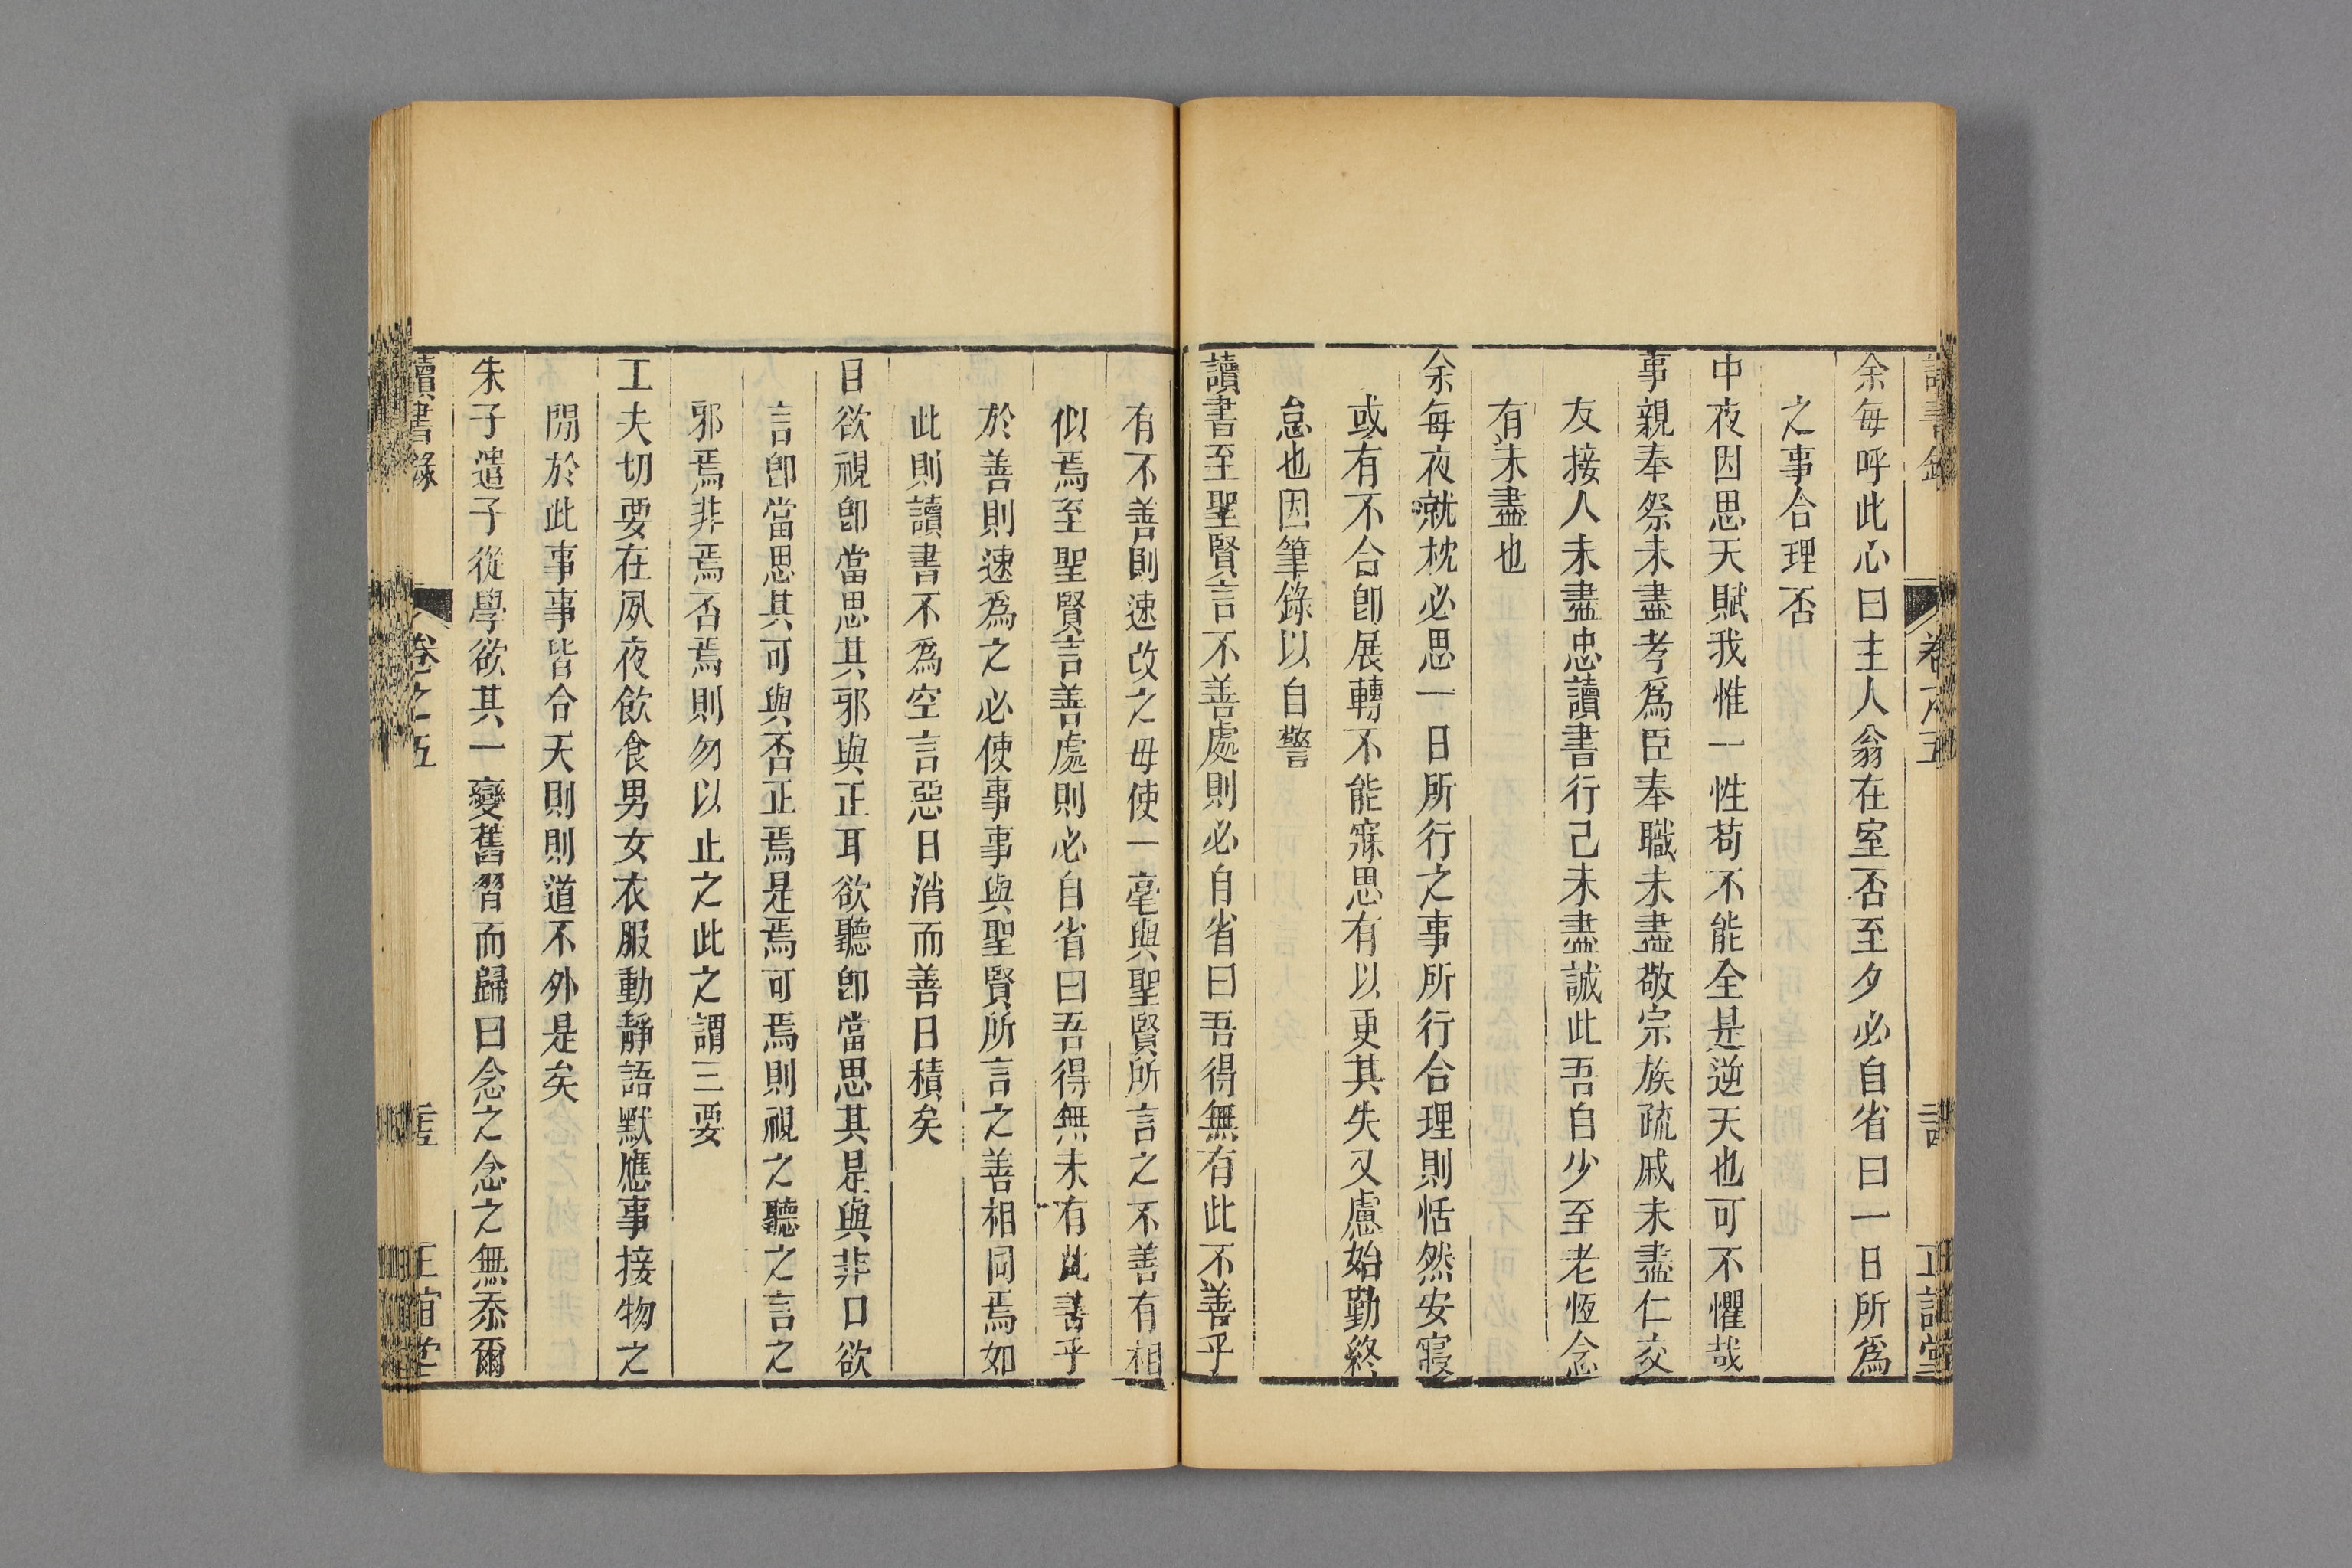 讀書錄 卷之五 正誼堂
余每呼此心曰主人翁在室否至夕必自省曰一日所爲
之事合理否
中夜因思天賦我惟一性苟不能全是逆天也可不懼哉
事親奉祭未盡孝爲臣奉職未盡敬宗族疏戚未盡仁交
友接人未盡忠讀書行己未盡誠此吾自少至老恆念
有未盡也
余每夜就枕必思一日所行之事所行合理則恬然安寢
或有不合卽展轉不能寐思有以更其失又慮始勤終
怠也因筆錄以自警
讀書至聖賢言不善處則必自省曰吾得無有此不善乎
有不善則速改之毋使一毫與聖賢所言之不善有相
似焉至聖賢言善處則必自省曰吾得無未有此善乎
於善則速爲之必使事事與聖賢所言之善相同焉如
此則讀書不爲空言惡日消而善日積矣
目欲視卽當思其邪與正耳欲聽卽當思其是與非口欲
言卽當思其可與否正焉是焉可焉則視之聽之言之
邪焉非焉否焉則勿以止之此之謂三要
工夫切要在夙夜飲食男女衣服動靜語默應事接物之
閒於此事事皆合天則則道不外是矣
朱子遣子從學欲其一變舊習而歸曰念之念之無忝爾
讀書錄 卷之五 正誼堂